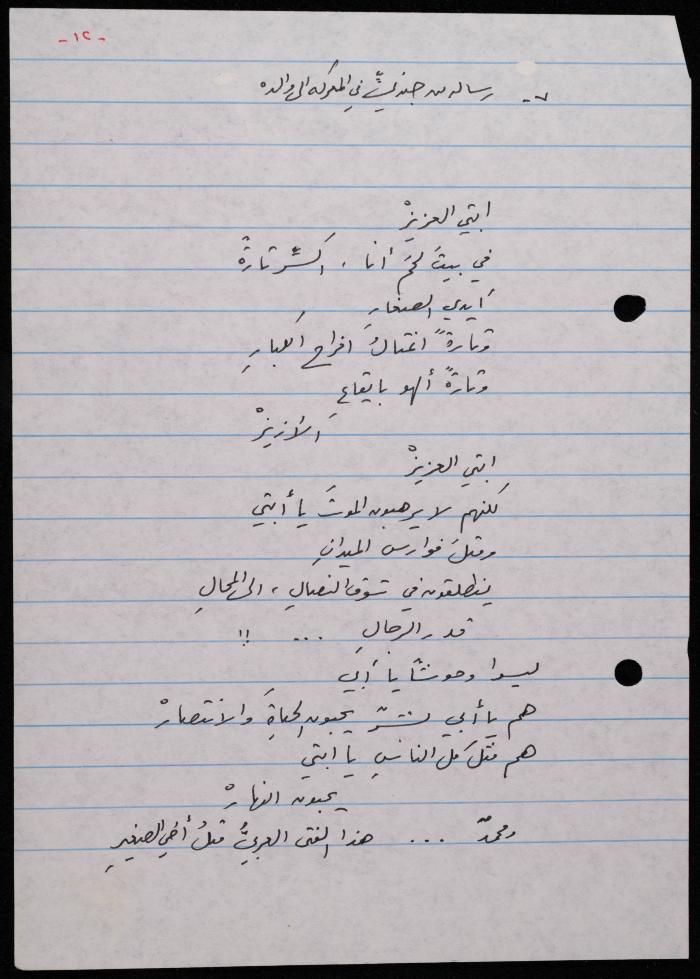 -١٢-
٧- رسالة من جنديٍّ في المعركة الى والده
ابتي العزيزْ
في بيتَ لحمَ أنا ، اكسّر تارةً
أيدي الصغارِ
وتارةً اغتالُ افراح الكبارِ
وتارةً ألهو بايقاعِ
الأزيزْ
ابتي العزيزْ
لكنهم لا يرهبون الموتَ يا أبتي
ومثلَ فوارس الميدانِ
ينطلقون في شوق النصالِ ، الى المحالِ
قدر الرجالِ ... !!
ليسوا وحوشًا يا أبي
هم يا أبي بشرٌ يحبون الحياةِ والانتصارْ
هم مثلَ كل الناسِ يا ابتي
يحبون النهارْ
ومحمدٌ ... هذا الفتى العربيُّ مثلُ أخي الصغيرِ